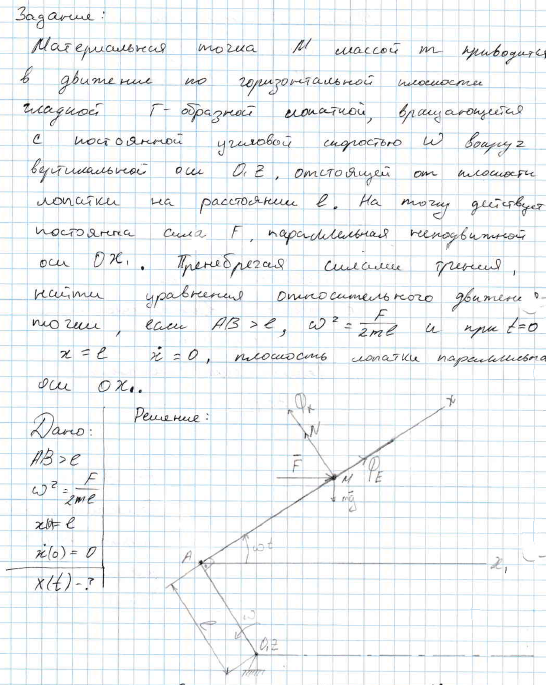 Задание:
Материальная точка M массой m приводится
в движение по горизонтальной плоскости
гладкой Г-образной лопаткой, вращающейся
с постоянной угловой скоростью ω вокруг
вертикальной оси O₁Z, отстоящей от плоскости
лопатки на расстоянии ℓ. На точку действует
постоянна сила F, параллельная неподвижной
оси OX₁. Пренебрегая силами трения,
найти уравнения относительного движение
точки, если AB > ℓ, ω² = F/2mℓ и при t=0
x = ℓ ẋ = 0, плоскость лопатки параллельна
оси OX₁.
Решение:
Дано:
AB > ℓ
ω² = F/2mℓ
ẋ(0) = 0
x(t) - ?
Φк
N
x
F̄
M
ΦE
mg̅
A
ωt
x₁
ℓ
ω
O₁Z